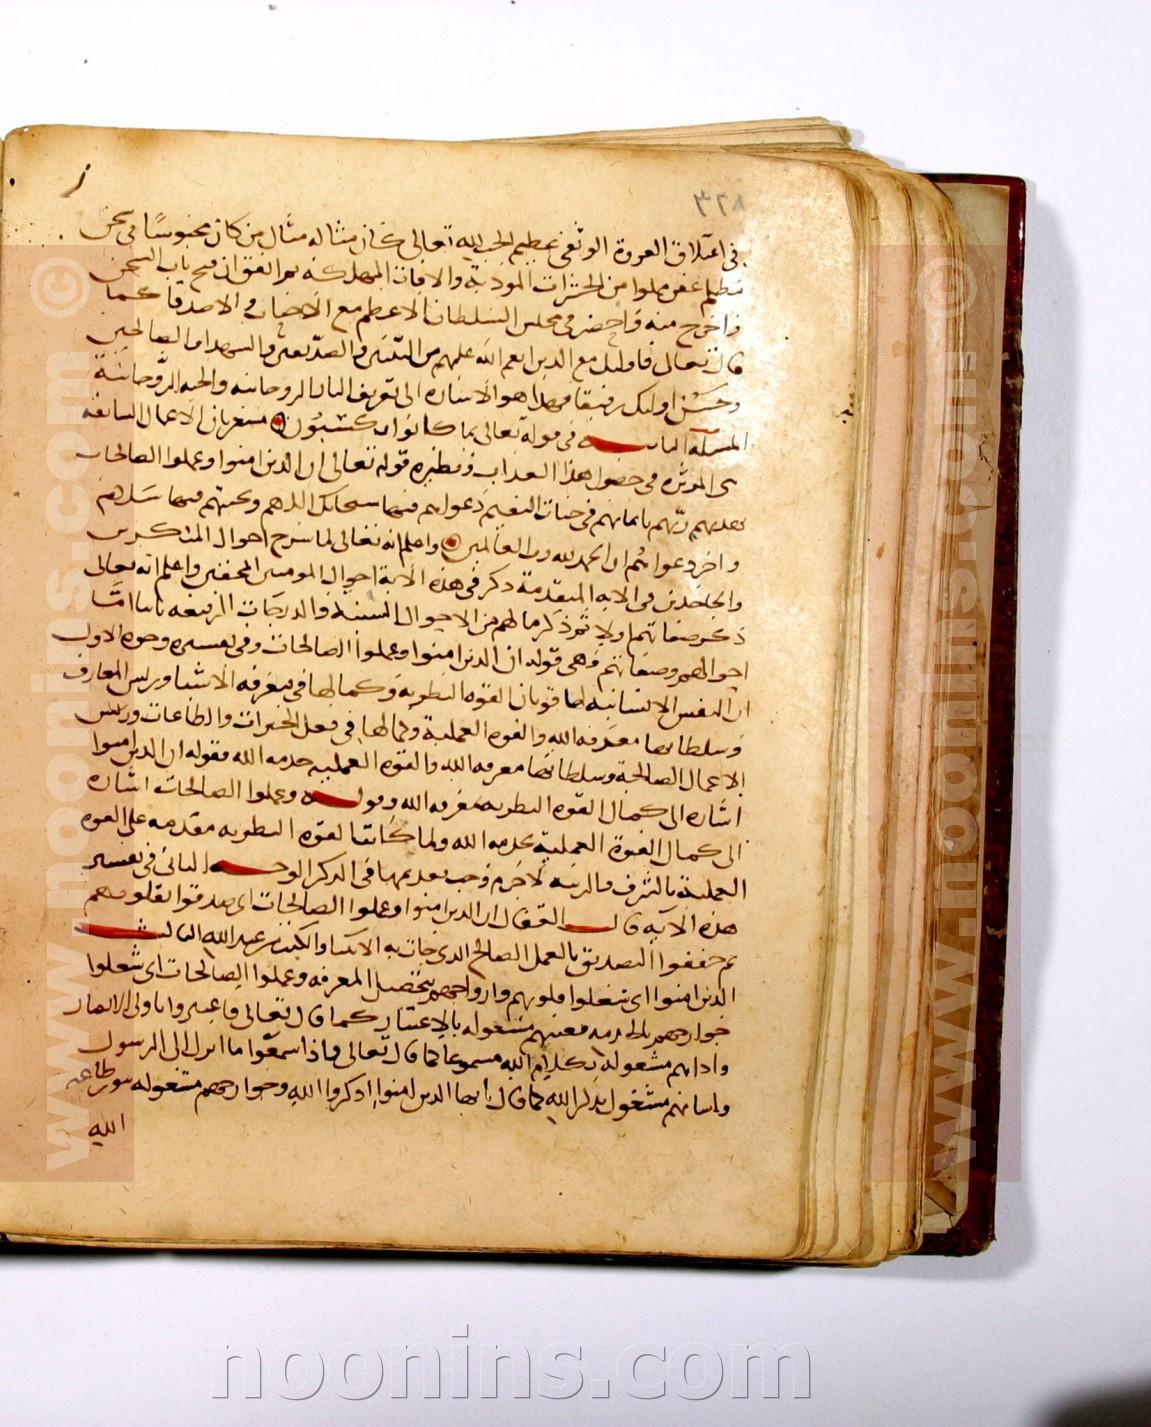 في اعتلاق العروة الوثقى بعظيم الحب لله تعالى كان مثاله مثال من كان محبوسا في سجن
مظلم عفن مملوا من الحشرات الموذية والافات المهلكة ثم اتفق ان فتح باب السجن
واخرج منه واحضر في مجلس السلطان الاعظم مع الاحباب والاصدقا كما
قال تعالى فاوليك مع الدين انعم الله عليهم من النبيين والصديقين والشهدا والصالحين
وحسن اوليك رفيقا فهدا هو الاشارة الى تعريف النار الروحانيه والجنه الروحانية
المسلة الثانيـــه في قوله تعالى بما كانوا يكسبون مشعر بان الاعمال السابقه
هى الموثره في حصول هذا العذاب ونظيره قوله تعالى ان الذين امنوا وعملوا الصالحات
يهديهم ربهم بايمانهم في جنات النعيم دعواهم فيها سبحانك اللهم وتحيتهم فيها سلام
واخر دعواهم ان الحمد لله رب العالمين واعلم انه تعالى لما شرح احوال المنكرين
والجاحدين في الايه المتقدمة ذكر في هذه الاية احوال المومنين المحقين واعلم انه تعالى
ذكر صفاتهم اولا ثم ذكر مالهم من الاحوال السنية والدرجات الرفيعه ثانيا امّا
احوالهم وصفاتهم فهي قوله ان الدين امنوا وعملوا الصالحات وفي تفسيره وجوه الاول
ان النفس الانسانيه لها قوتان القوه النظريه وكمالها في معرفه الاشيا ورييس المعارف
وسلطانها معرفه الله والقوه العملية وكمالها في فعل الخيرات والطاعات ورييس
الاعمال الصالحة وسلطانها معرفه الله والقوه العمليه خدمه الله فقوله ان الدين امنوا
اشاره الى كمال القوه النظريه بمعرفه الله وقولــه وعملوا الصالحات اشاره
الى كمال القوة العملية بخدمه الله ولما كانت القوه النظريه مقدمه على القوه
العملية بالشرف والرتبه لا جرم وجب تقديمها في الدكر الوجــه الثاني في تفسير
هذه الايه قالــ القفال ان الدين امنوا وعملوا الصالحات اي صدقوا بقلوبهم
ثم حققوا التصديق بالعمل الصالح الدي جات به الانبيا والكتب من عند الله الثالــث
الدين امنوا اي شغلوا قلوبهم وارواحهم بتحصيل المعرفه وعملوا الصالحات اي شغلوا
جوارحهم بالخدمه فعينهم مشغوله بالاعتبار كما قال تعالى فاعتبروا يا اولى الابصار
وادانهم مشغوله بكلام الله مسموعا كما قال تعالى واذا سمعوا ما انزل الى الرسول
ولسانهم مشغول بذكر الله كما قال يا ايها الدين امنوا اذكروا الله وجوارحهم مشغوله بنور طاعه
الله
www.noonins.com ©
www.noonins.com ©
noonins.com